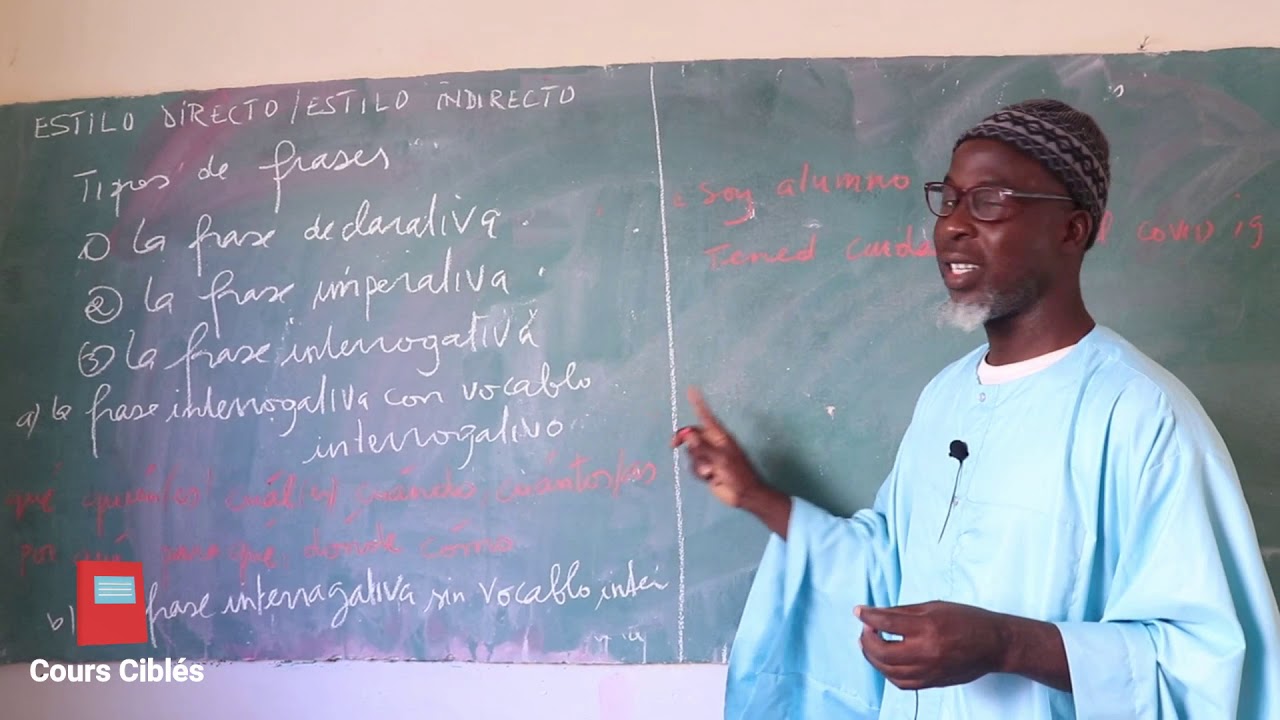 ESTILO DIRECTO/ESTILO INDIRECTO
Tipos de frases
1) La frase declarativa.
2) La frase imperativa.
3) La frase interrogativa
a) la frase interrogativa con vocablo
interrogativo
qué quién(es) cuál(es) cuándo, cuántos/as
por qué para que, donde cómo
b) frase interragativa sin vocablo inter
Soy alumno
Tened covid 19
Cours Ciblés